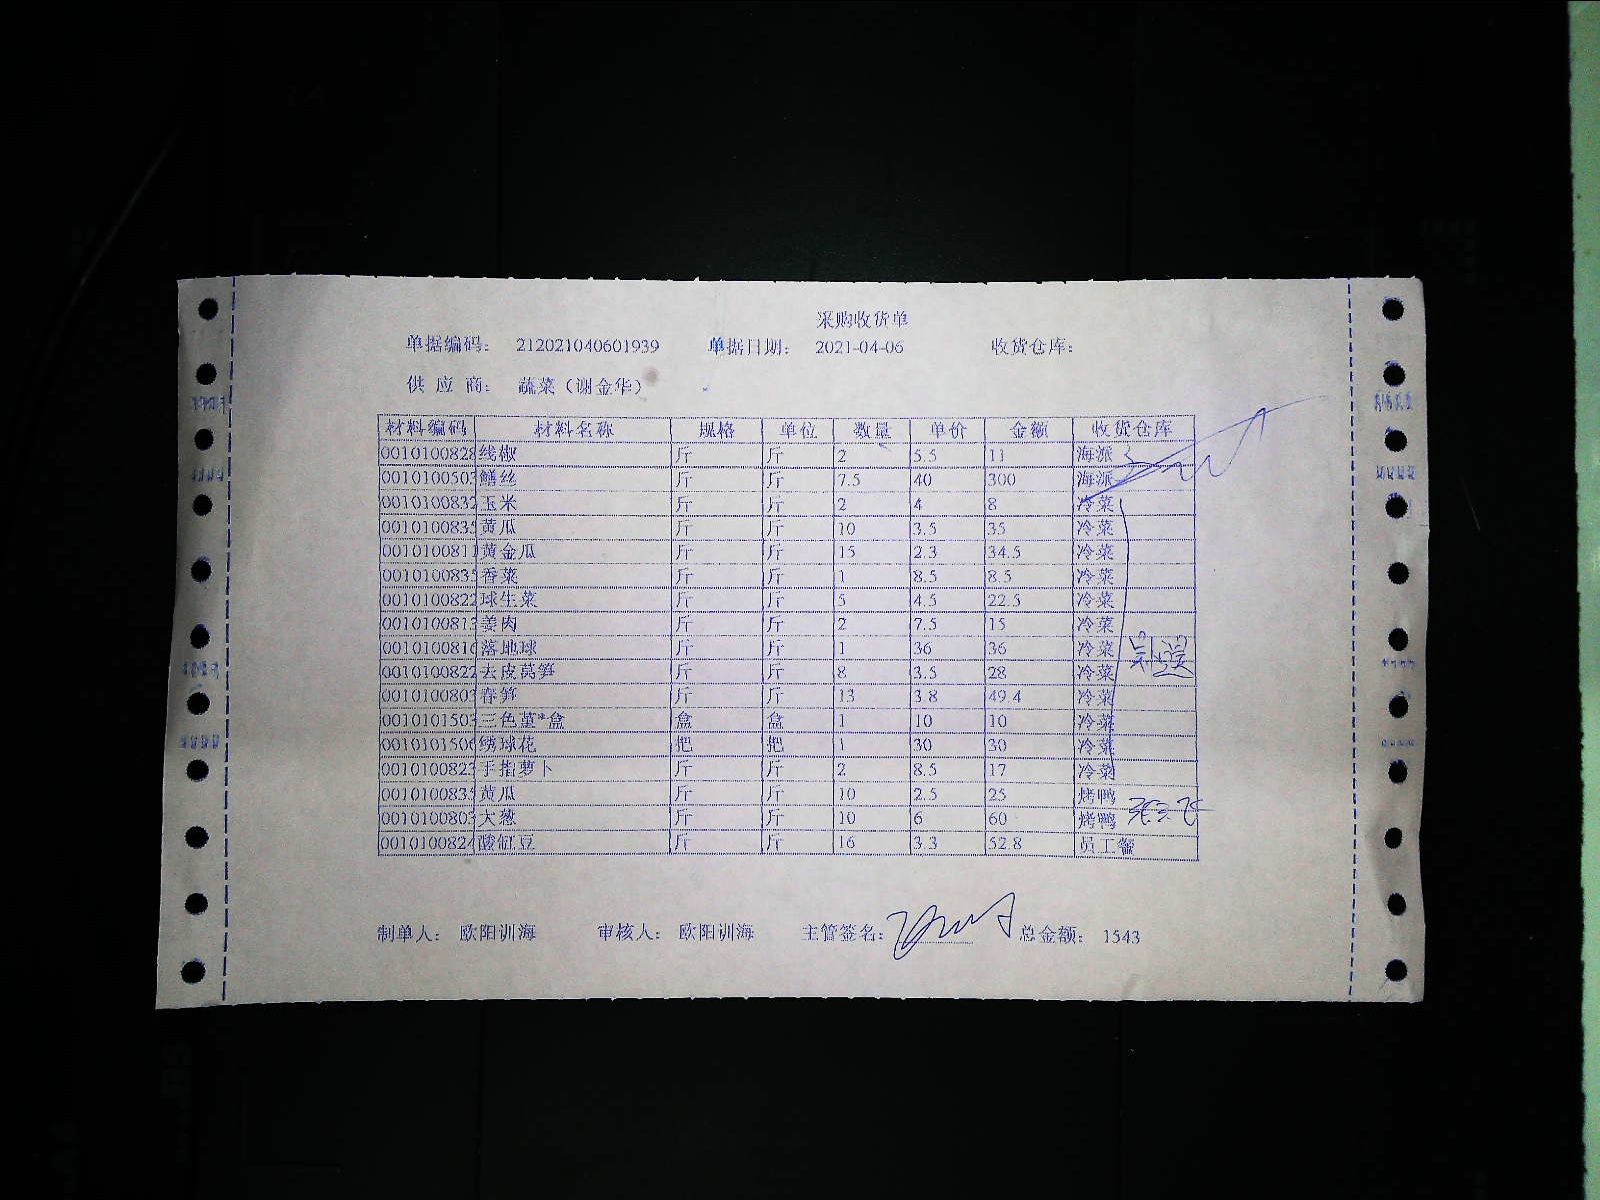 采购收货单
单据编码: 212021040601939 单据日期: 2021-04-06 收货仓库:
供 应 商: 蔬菜（谢金华）
材料编码 材料名称 规格 单位 数量 单价 金额 收货仓库
0010100828 线椒 斤 斤 2 5.5 11 海派
001010050 鳝丝 斤 斤 7.5 40 300 海派
0010100832 玉米 斤 斤 2 4 8 冷菜
001010083 黄瓜 斤 斤 10 3.5 35 冷菜
001010081 黄金瓜 斤 斤 15 2.3 34.5 冷菜
001010083 香菜 斤 斤 1 8.5 8.5 冷菜
0010100822 球生菜 斤 斤 5 4.5 22.5 冷菜
001010081 姜肉 斤 斤 2 7.5 15 冷菜
001010081 落地球 斤 斤 1 36 36 冷菜
0010100822 去皮莴笋 斤 斤 8 3.5 28 冷菜
001010080 春笋 斤 斤 13 3.8 49.4 冷菜
001010150 三色堇*盒 盒 盒 1 10 10 冷菜
001010150 绣球花 把 把 1 30 30 冷菜
001010082 手指萝卜 斤 斤 2 8.5 17 冷菜
001010083 黄瓜 斤 斤 10 2.5 25 烤鸭
001010080 大葱 斤 斤 10 6 60 烤鸭
001010082 酸豇豆 斤 斤 16 3.3 52.8 员工餐
制单人: 欧阳训海 审核人: 欧阳训海 主管签名: 总金额: 1543